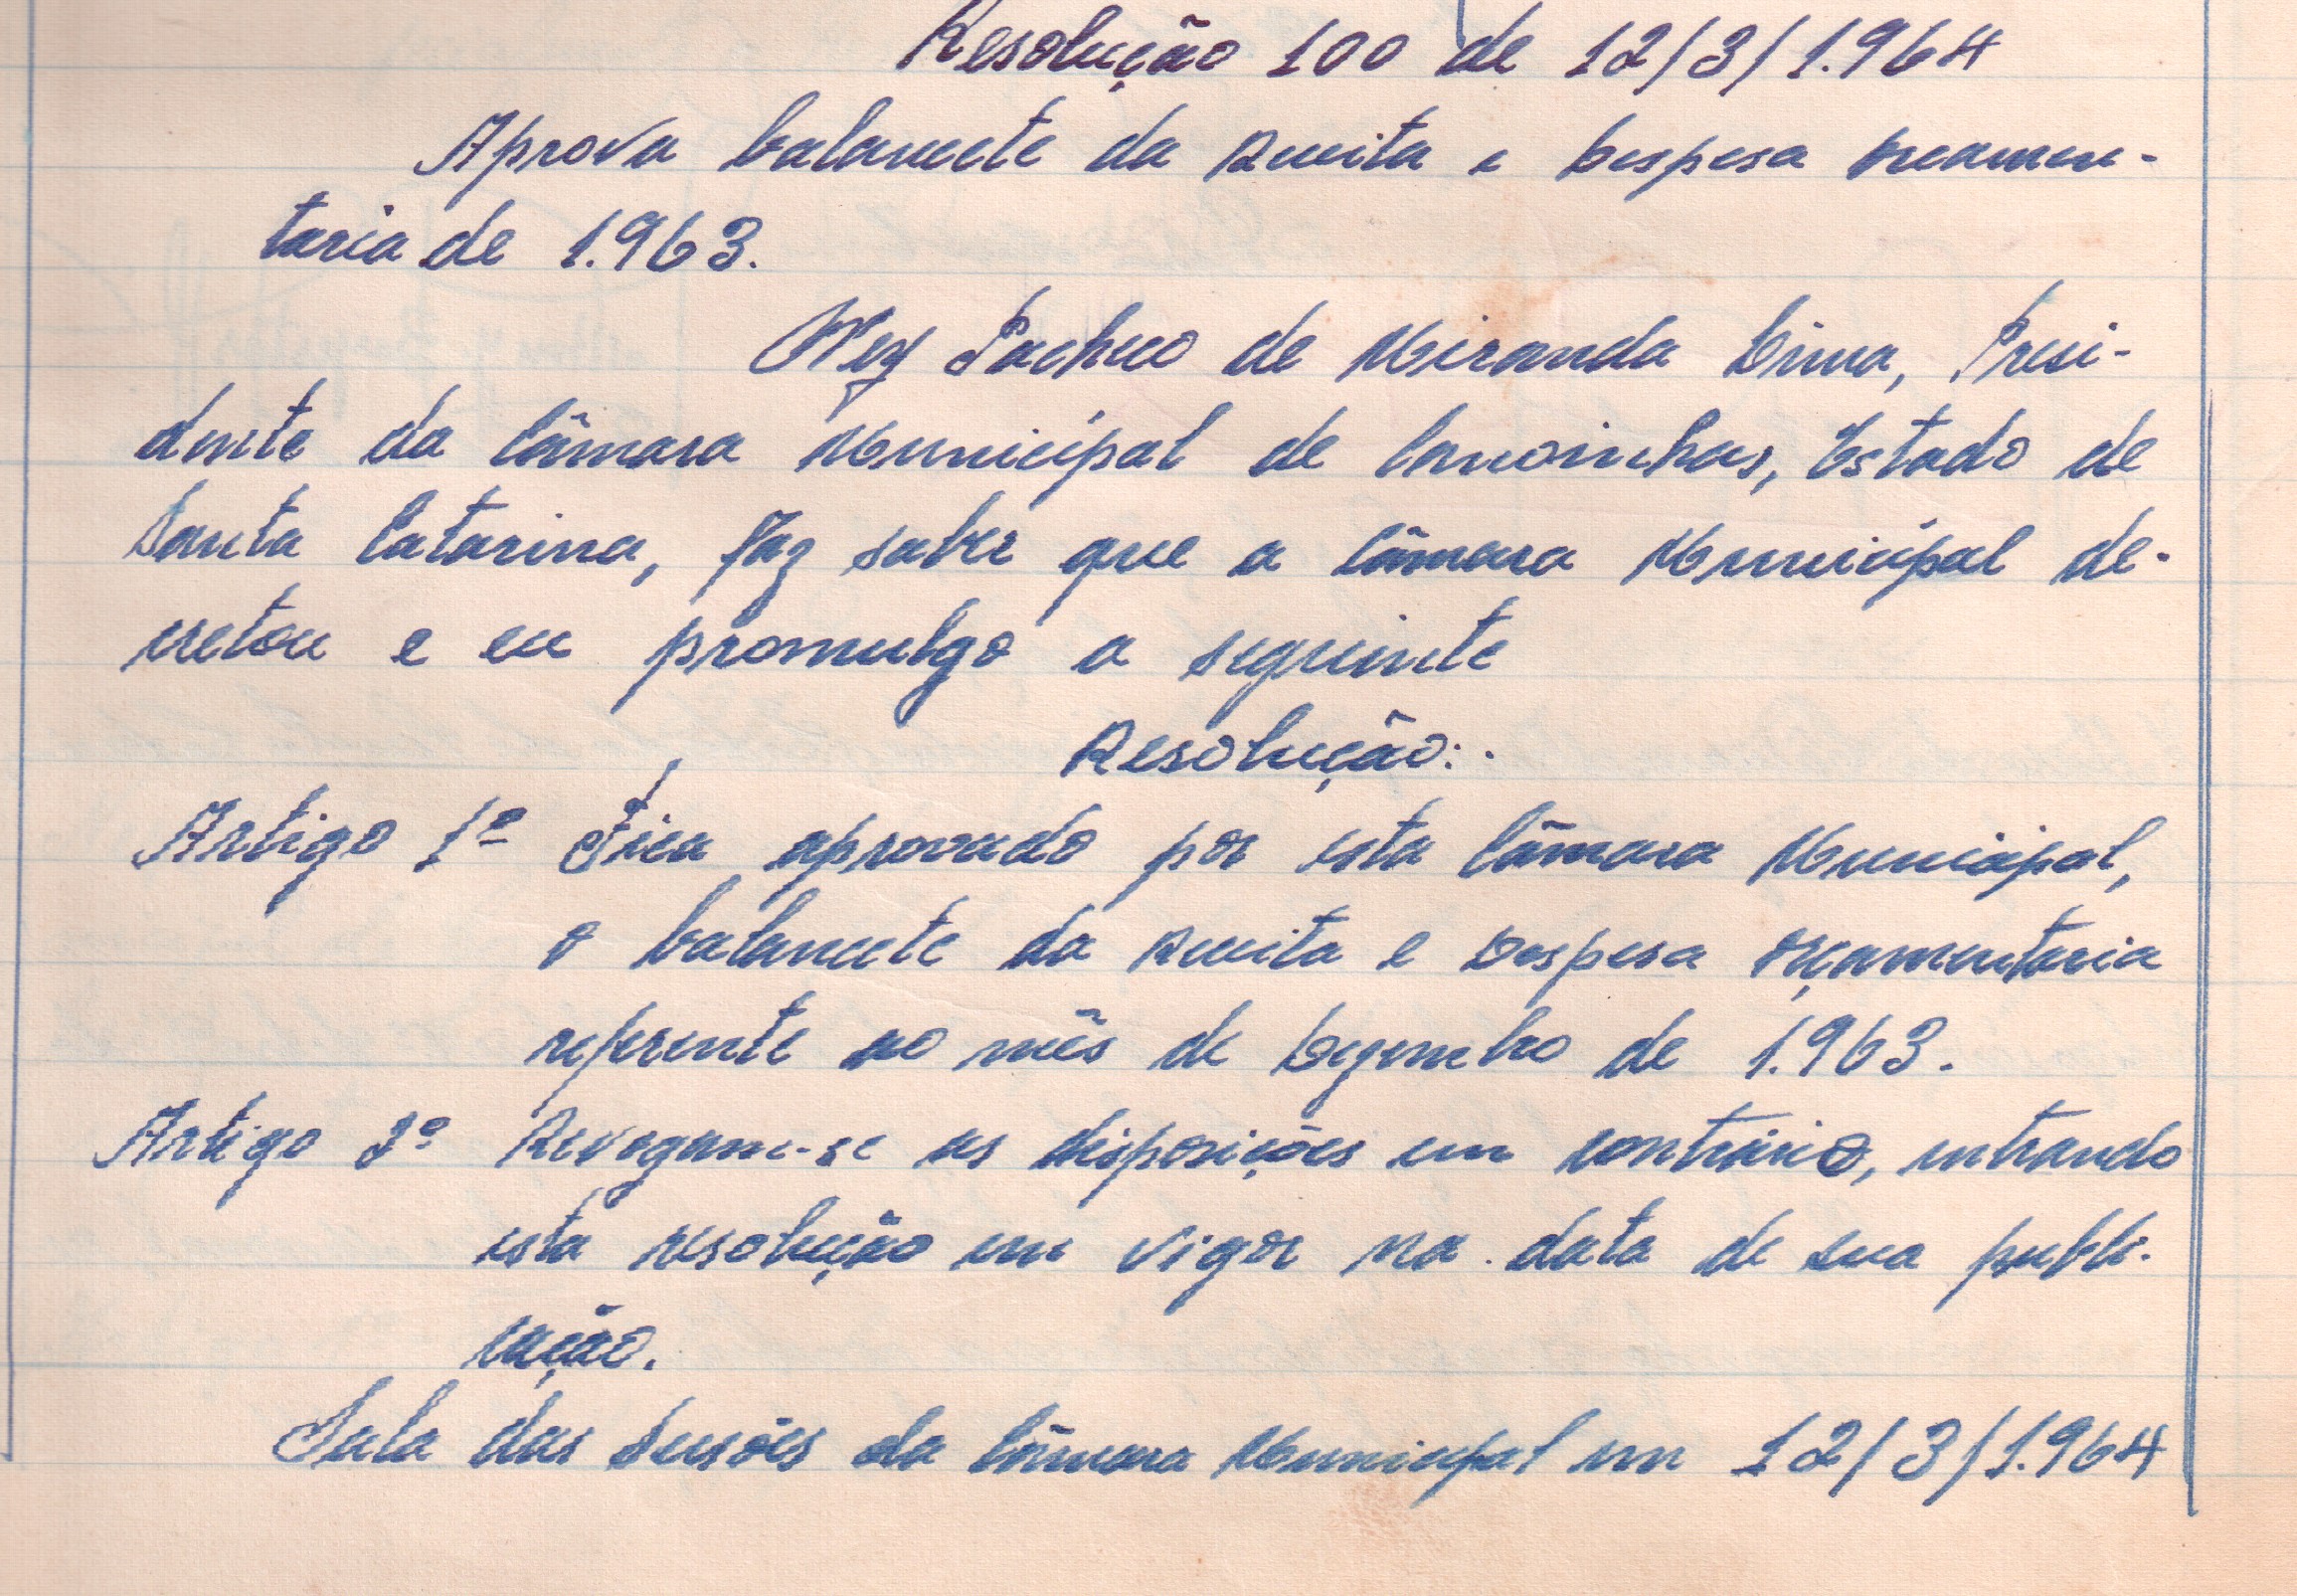 Resolução 100 de 12/3/1.964
Aprova balancete da Receita e Despesa orcamen-
taria de 1.963.
Ney Pacheco de Miranda Lima, Presi-
dente da Câmara Municipal de Canoinhas, Estado de
Santa Catarina, Faz saber que a Câmara Municipal de-
cretou e eu promulgo a seguinte
Resolução:.
Artigo 1º Fica aprovado por esta Câmara Municipal,
o balancete da Receita e Despesa orçamentaria
referente ao mês de Dezembro de 1.963.
Artigo 2º Revogam-se as disposições em contrário, entrando
esta resolução em vigor na data de sua publi-
cação.
Sala das Sessões da Câmara Municipal em 12/3/1.964